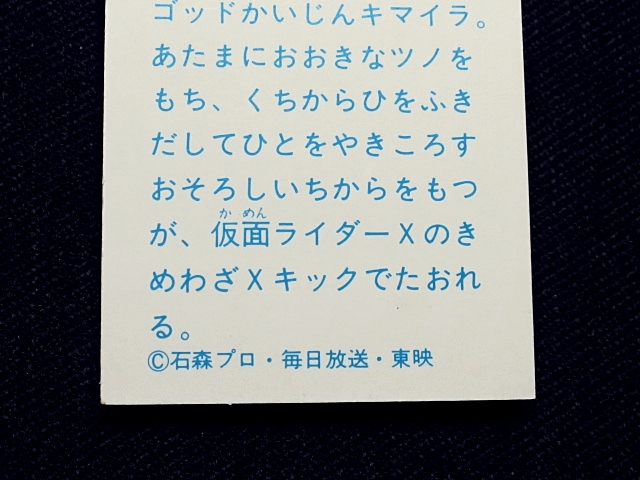 ゴッドかいじんキマイラ。
あたまにおおきなツノを
もち、くちからひをふき
だしてひとをやきころす
おそろしいちからをもつ
が、仮面ライダーXのき
めわざXキックでたおれ
る。
©石森プロ・毎日放送・東映